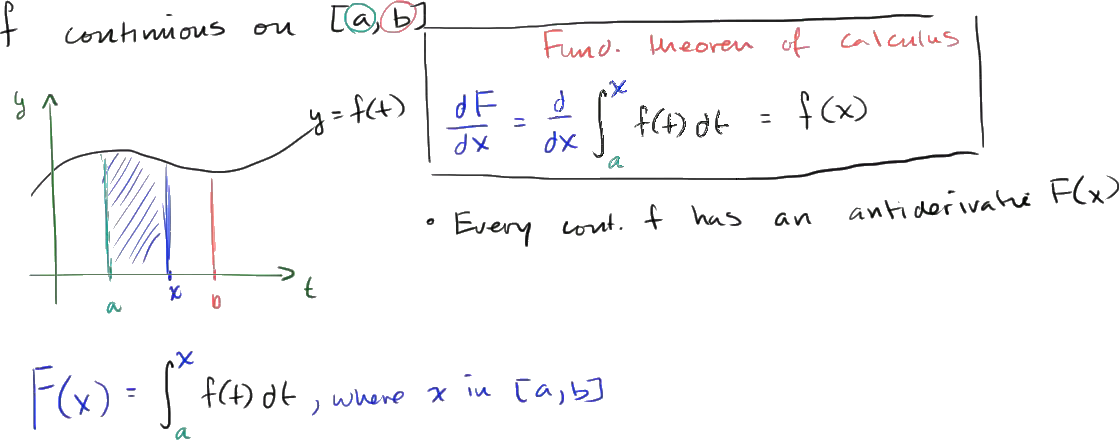 f continuous on [a, b]
Fund. theorem of calculus
y
y = f(t)
dF/dx = d/dx ∫_a^x f(t) dt = f(x)
• Every cont. f has an antiderivative F(x)
a x b t
F(x) = ∫_a^x f(t) dt, where x in [a, b]